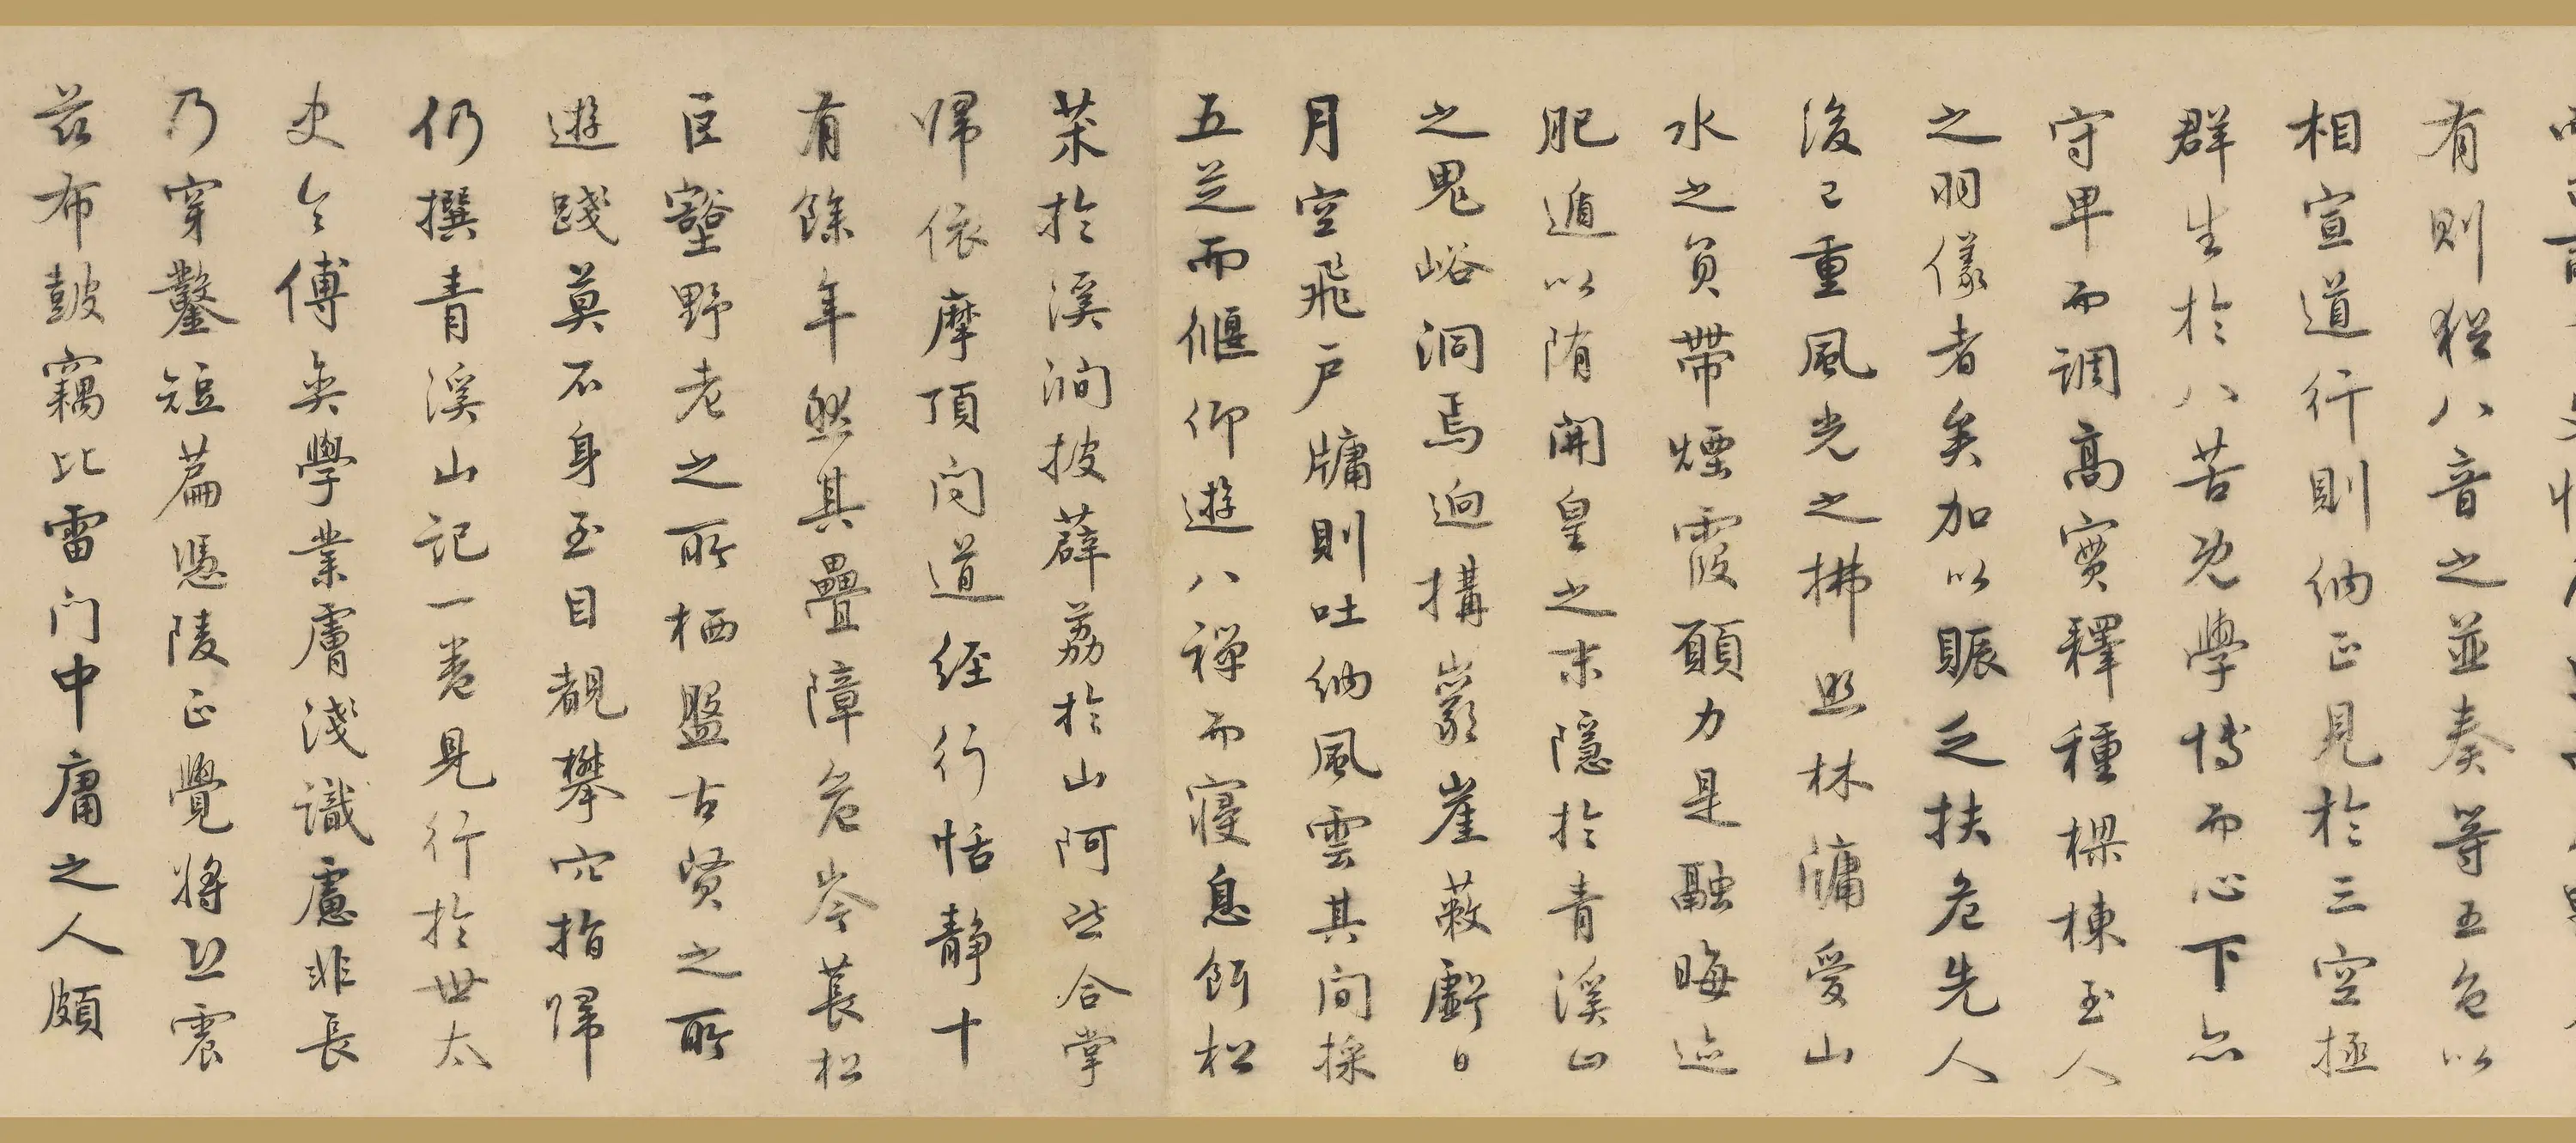 有則猶八音之並奏等五色以
相宣道行則納正見於三空拯
群生於八苦既學博而心下亦
守卑而調高實釋種樑棟至人
之羽儀者矣加以賑乏扶危先人
後己重風光之拂照林牖愛山
水之負帶煙霞願力是融晦迹
肥遁以隋開皇之末隱於青溪山
之鬼峪洞焉迥構巖崖蔽虧日
月空飛户牖則吐納風雲其間採
五芝而偃仰遊八禪而寢息餌松
萊於溪澗披薜荔於山阿皆合掌
歸依摩頂問道經行恬静十
有餘年然其疊障危岑萇松
巨壑野老之所栖盤古賢之所
遊踐莫不身至目覩攀穴指歸
仍撰青溪山記一卷見行於世太
史令傅奕學業膚淺識慮非長
乃穿鑿短篇憑陵正覺將恐震
茲布皷竊比雷门中庸之人頗